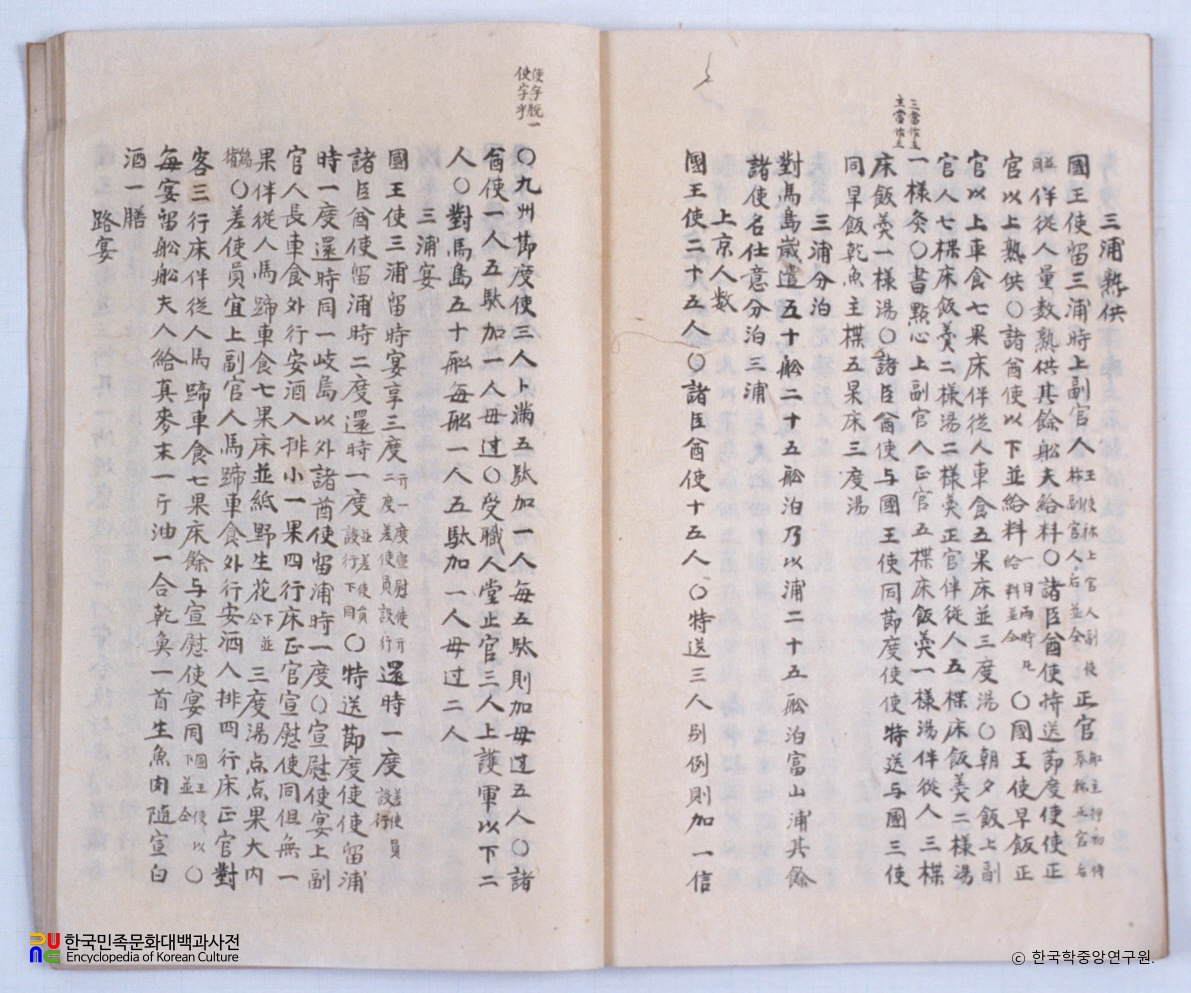 三當作五
主當作五
三浦熟供
國王使留三浦時上副官人王使称上官人副使称副官人后並仝正官
胵伴從人量数熟供其餘舩夫給料〇諸臣酋使特送莭度使使正
官以上熟供〇諸酋使以下並給料給料並仝一日兩時〇國王使早飯正
官以上車食七果床伴從人車食五果床並三度湯〇朝夕飯上副
官人七楪床飯羹二樣湯二樣炙正官伴從人五楪床飯羹二樣湯
一樣炙〇晝點心上副官人正官五楪床飯羹一樣湯伴從人三楪
床飯羹一樣湯〇諸臣酋使与國王使同莭度使使特送与國三使
同早飯乾魚主楪五果床三度湯
三浦分泊
對馬島歲遣五十舩二十五舩泊乃以浦二十五舩泊富山浦其餘
諸使各任意分泊三浦
上京人数
國王使二十五人〇諸臣酋使十五人〇特送三人别例則加一信
使字脱一
使字乎
〇九州莭度使三人上滿五駄加一人每五駄則加毋过五人〇諸
酋使一人五駄加一人毋过〇受職人堂上官三人上護軍以下二
人〇對馬島五十舩每舩一人五駄加一人毋过二人
三浦宴
國王使三浦留時宴享三度還時一度差使員設行
諸臣酋使留浦時二度還時一度並差使員設行下同〇特送莭度使使留浦
時一度還時同一岐島以外諸酋使留浦時一度〇宣慰使宴上副
官人長車食外行安酒入排小一果四行床正官宣慰使同但無一
果伴從人馬蹄車食七果床並紙野生花下並仝三度湯点点果大肉
〇差使員宜上副官人馬蹄車食外行安酒入排四行床正官對
客三行床伴從人馬蹄車食七果床餘与宣慰使宴同國王使以下並仝〇
每宴留舩舩夫人給真麥末一斤油一合乾魚一首生魚肉随宜白
酒一膳
路宴
한국민족문화대백과사전
Encyclopedia of Korean Culture
© 한국학중앙연구원.